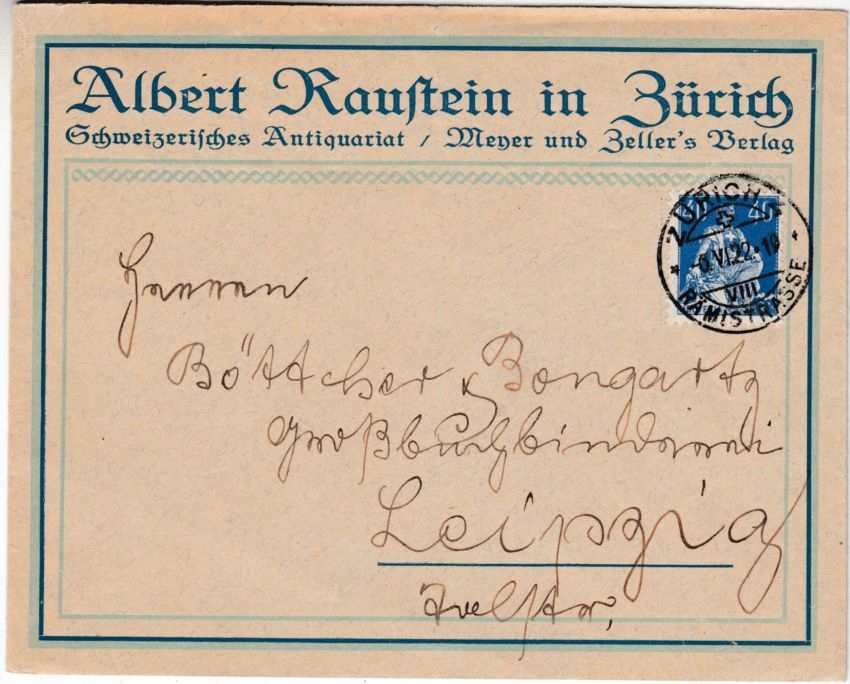 Albert Raustein in Zürich
Schweizerisches Antiquariat / Meyer und Zeller's Verlag
40
ZÜRICH
VI.22
VIII
RÄMISTRASSE
Herren
Böttcher & Bongartz
Großbuchbinderei
Leipzig